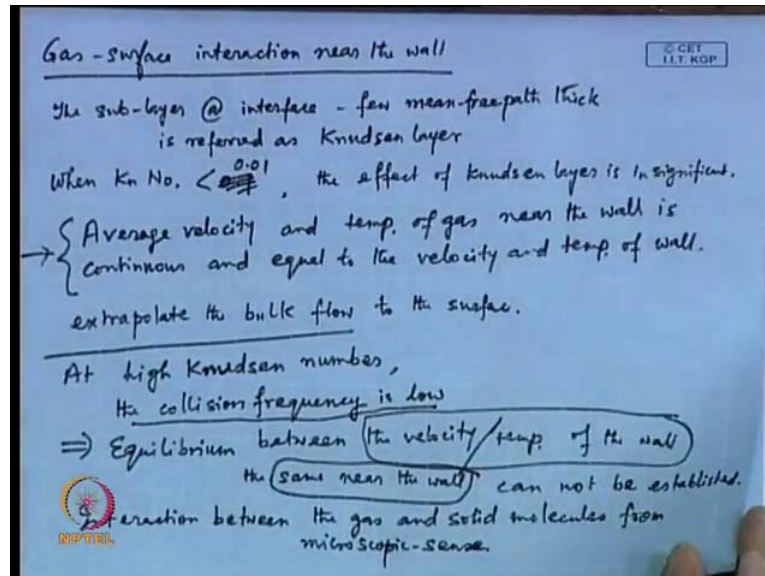 Gas-surface interaction near the wall
© CET
I.I.T. KGP
The sub-layer @ interface - few mean-free path thick
is referred as Knudsen layer
When Kn No. < 0.01, the effect of knudsen layer is insignificant.
Average velocity and temp. of gas near the wall is
continuous and equal to the velocity and temp. of wall.
extrapolate the bulk flow to the surface.
At high Knudsen number,
the collision frequency is low
⇒ Equilibrium between the velocity/temp. of the wall
the same near the wall can not be established.
Interaction between the gas and solid molecules from
microscopic-sense.
NPTEL